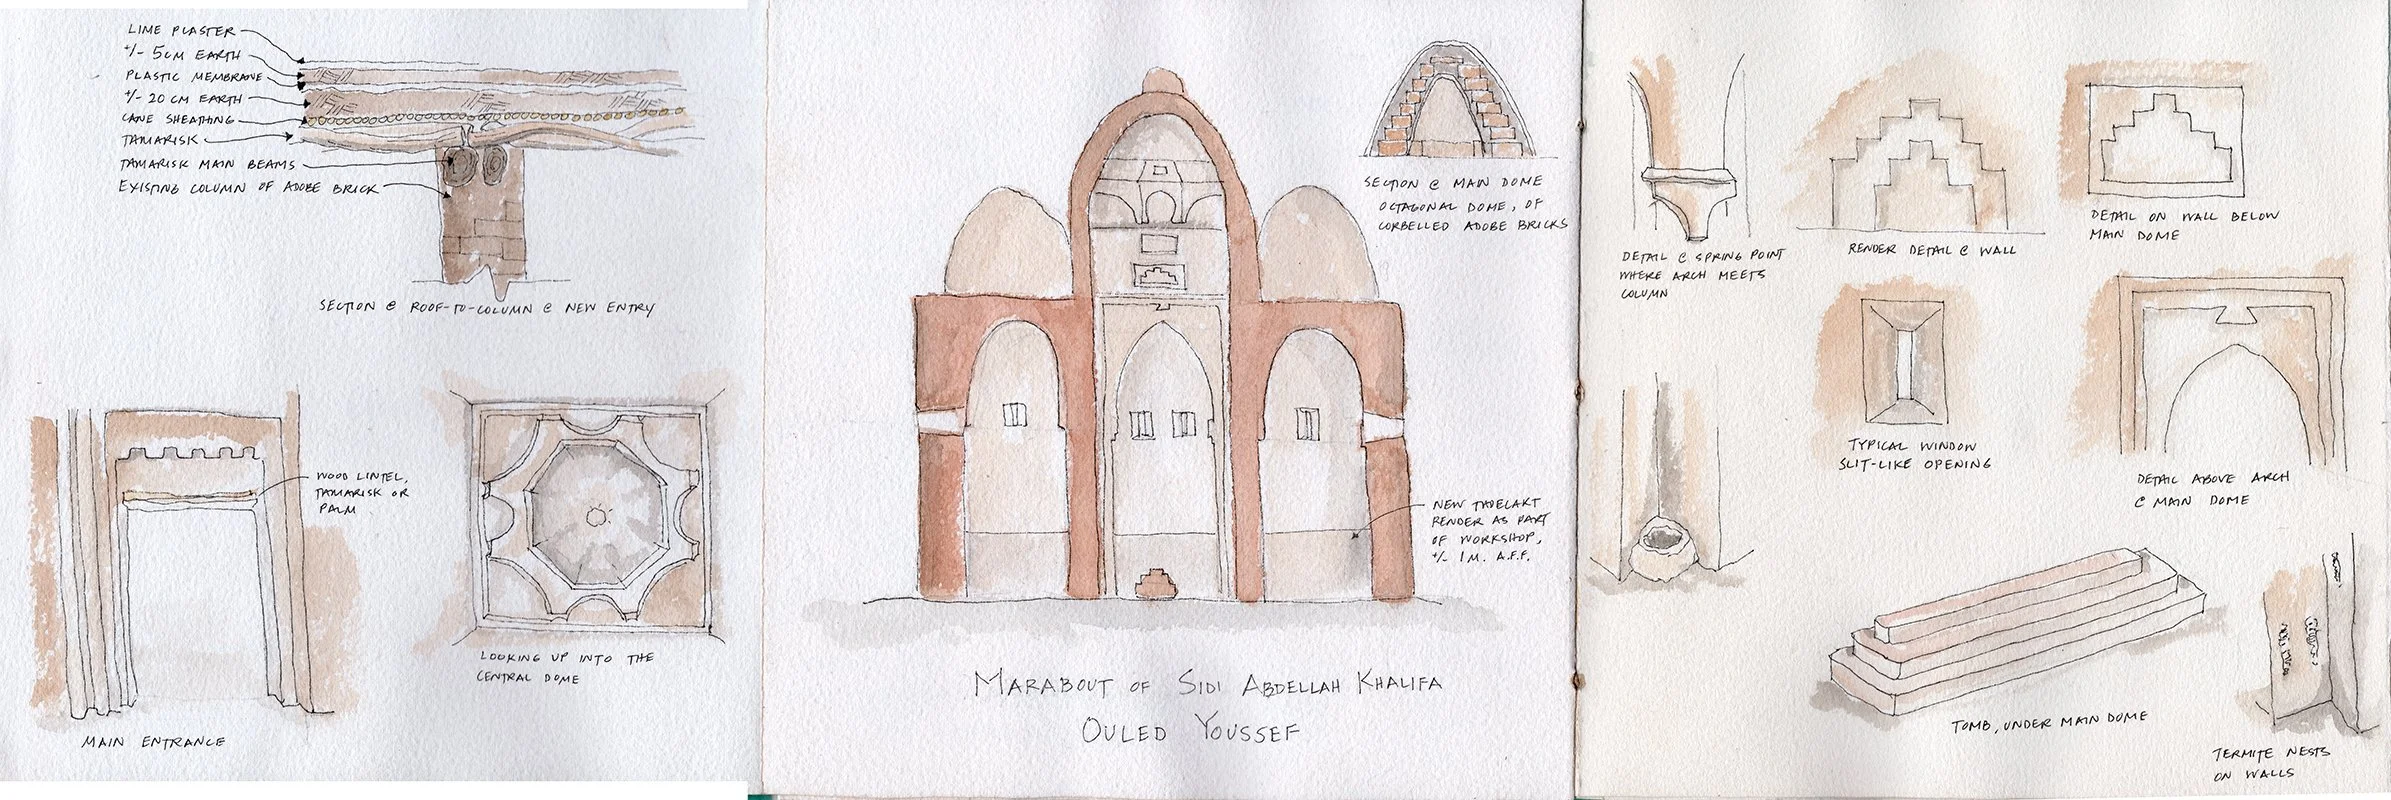 LIME PLASTER
+/- 5CM EARTH
PLASTIC MEMBRANE
+/- 20 CM EARTH
CANE SHEATHING
TAMARISK
TAMARISK MAIN BEAMS
EXISTING COLUMN OF ADOBE BRICK
SECTION @ ROOF-TO-COLUMN @ NEW ENTRY
WOOD LINTEL,
TAMARISK OR
PALM
MAIN ENTRANCE
LOOKING UP INTO THE
CENTRAL DOME
SECTION @ MAIN DOME
OCTAGONAL DOME, OF
CORBELLED ADOBE BRICKS
NEW TADELAKT
RENDER AS PART
OF WORKSHOP,
+/- 1M. A.F.F.
MARABOUT OF SIDI ABDELLAH KHALIFA
OULED YOUSSEF
DETAIL @ SPRING POINT
WHERE ARCH MEETS
COLUMN
RENDER DETAIL @ WALL
DETAIL ON WALL BELOW
MAIN DOME
TYPICAL WINDOW
SLIT-LIKE OPENING
DETAIL ABOVE ARCH
@ MAIN DOME
TOMB, UNDER MAIN DOME
TERMITE NESTS
ON WALLS